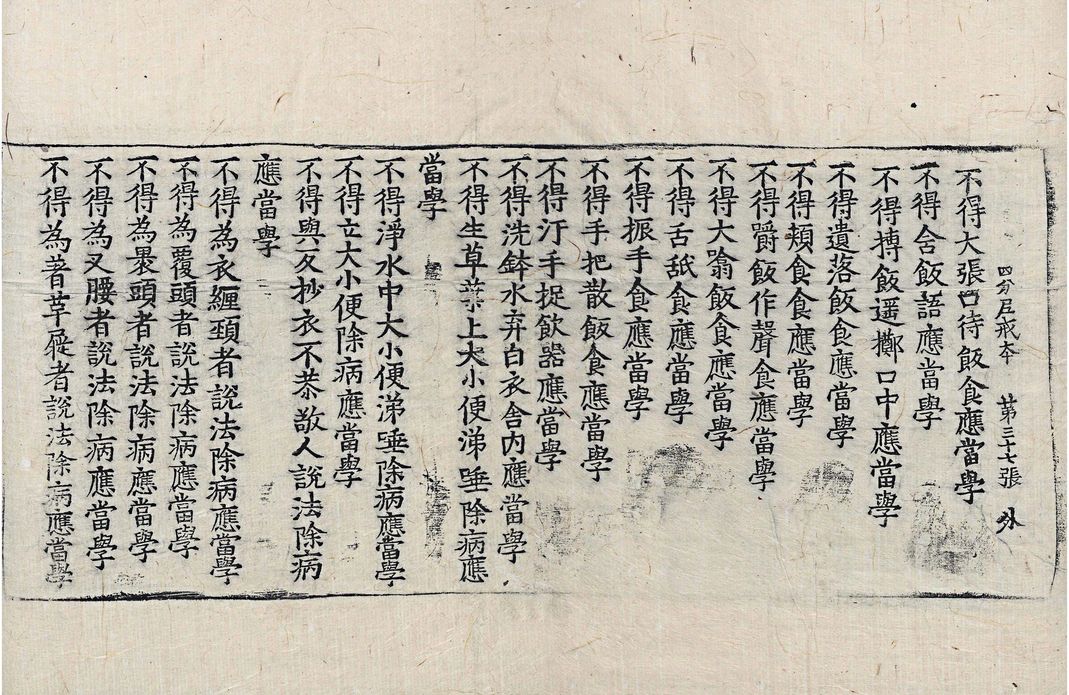 四分尼戒本　第三十七張　外
不得大張口待飯食應當學
不得含飯語應當學
不得摶飯遥擲口中應當學
不得遺落飯食應當學
不得頰食食應當學
不得嚼飯作聲食應當學
不得大噏飯食應當學
不得舌舐食應當學
不得振手食應當學
不得手把散飯食應當學
不得汙手捉飲器應當學
不得洗鉢水弃白衣舍内應當學
不得生草葉上大小便涕唾除病應
當學
不得淨水中大小便涕唾除病應當學
不得立大小便除病應當學
不得與反抄衣不恭敬人說法除病
應當學
不得為衣纏頚者說法除病應當學
不得為覆頭者說法除病應當學
不得為褁頭者說法除病應當學
不得為叉腰者說法除病應當學
不得為著草屣者說法除病應當學